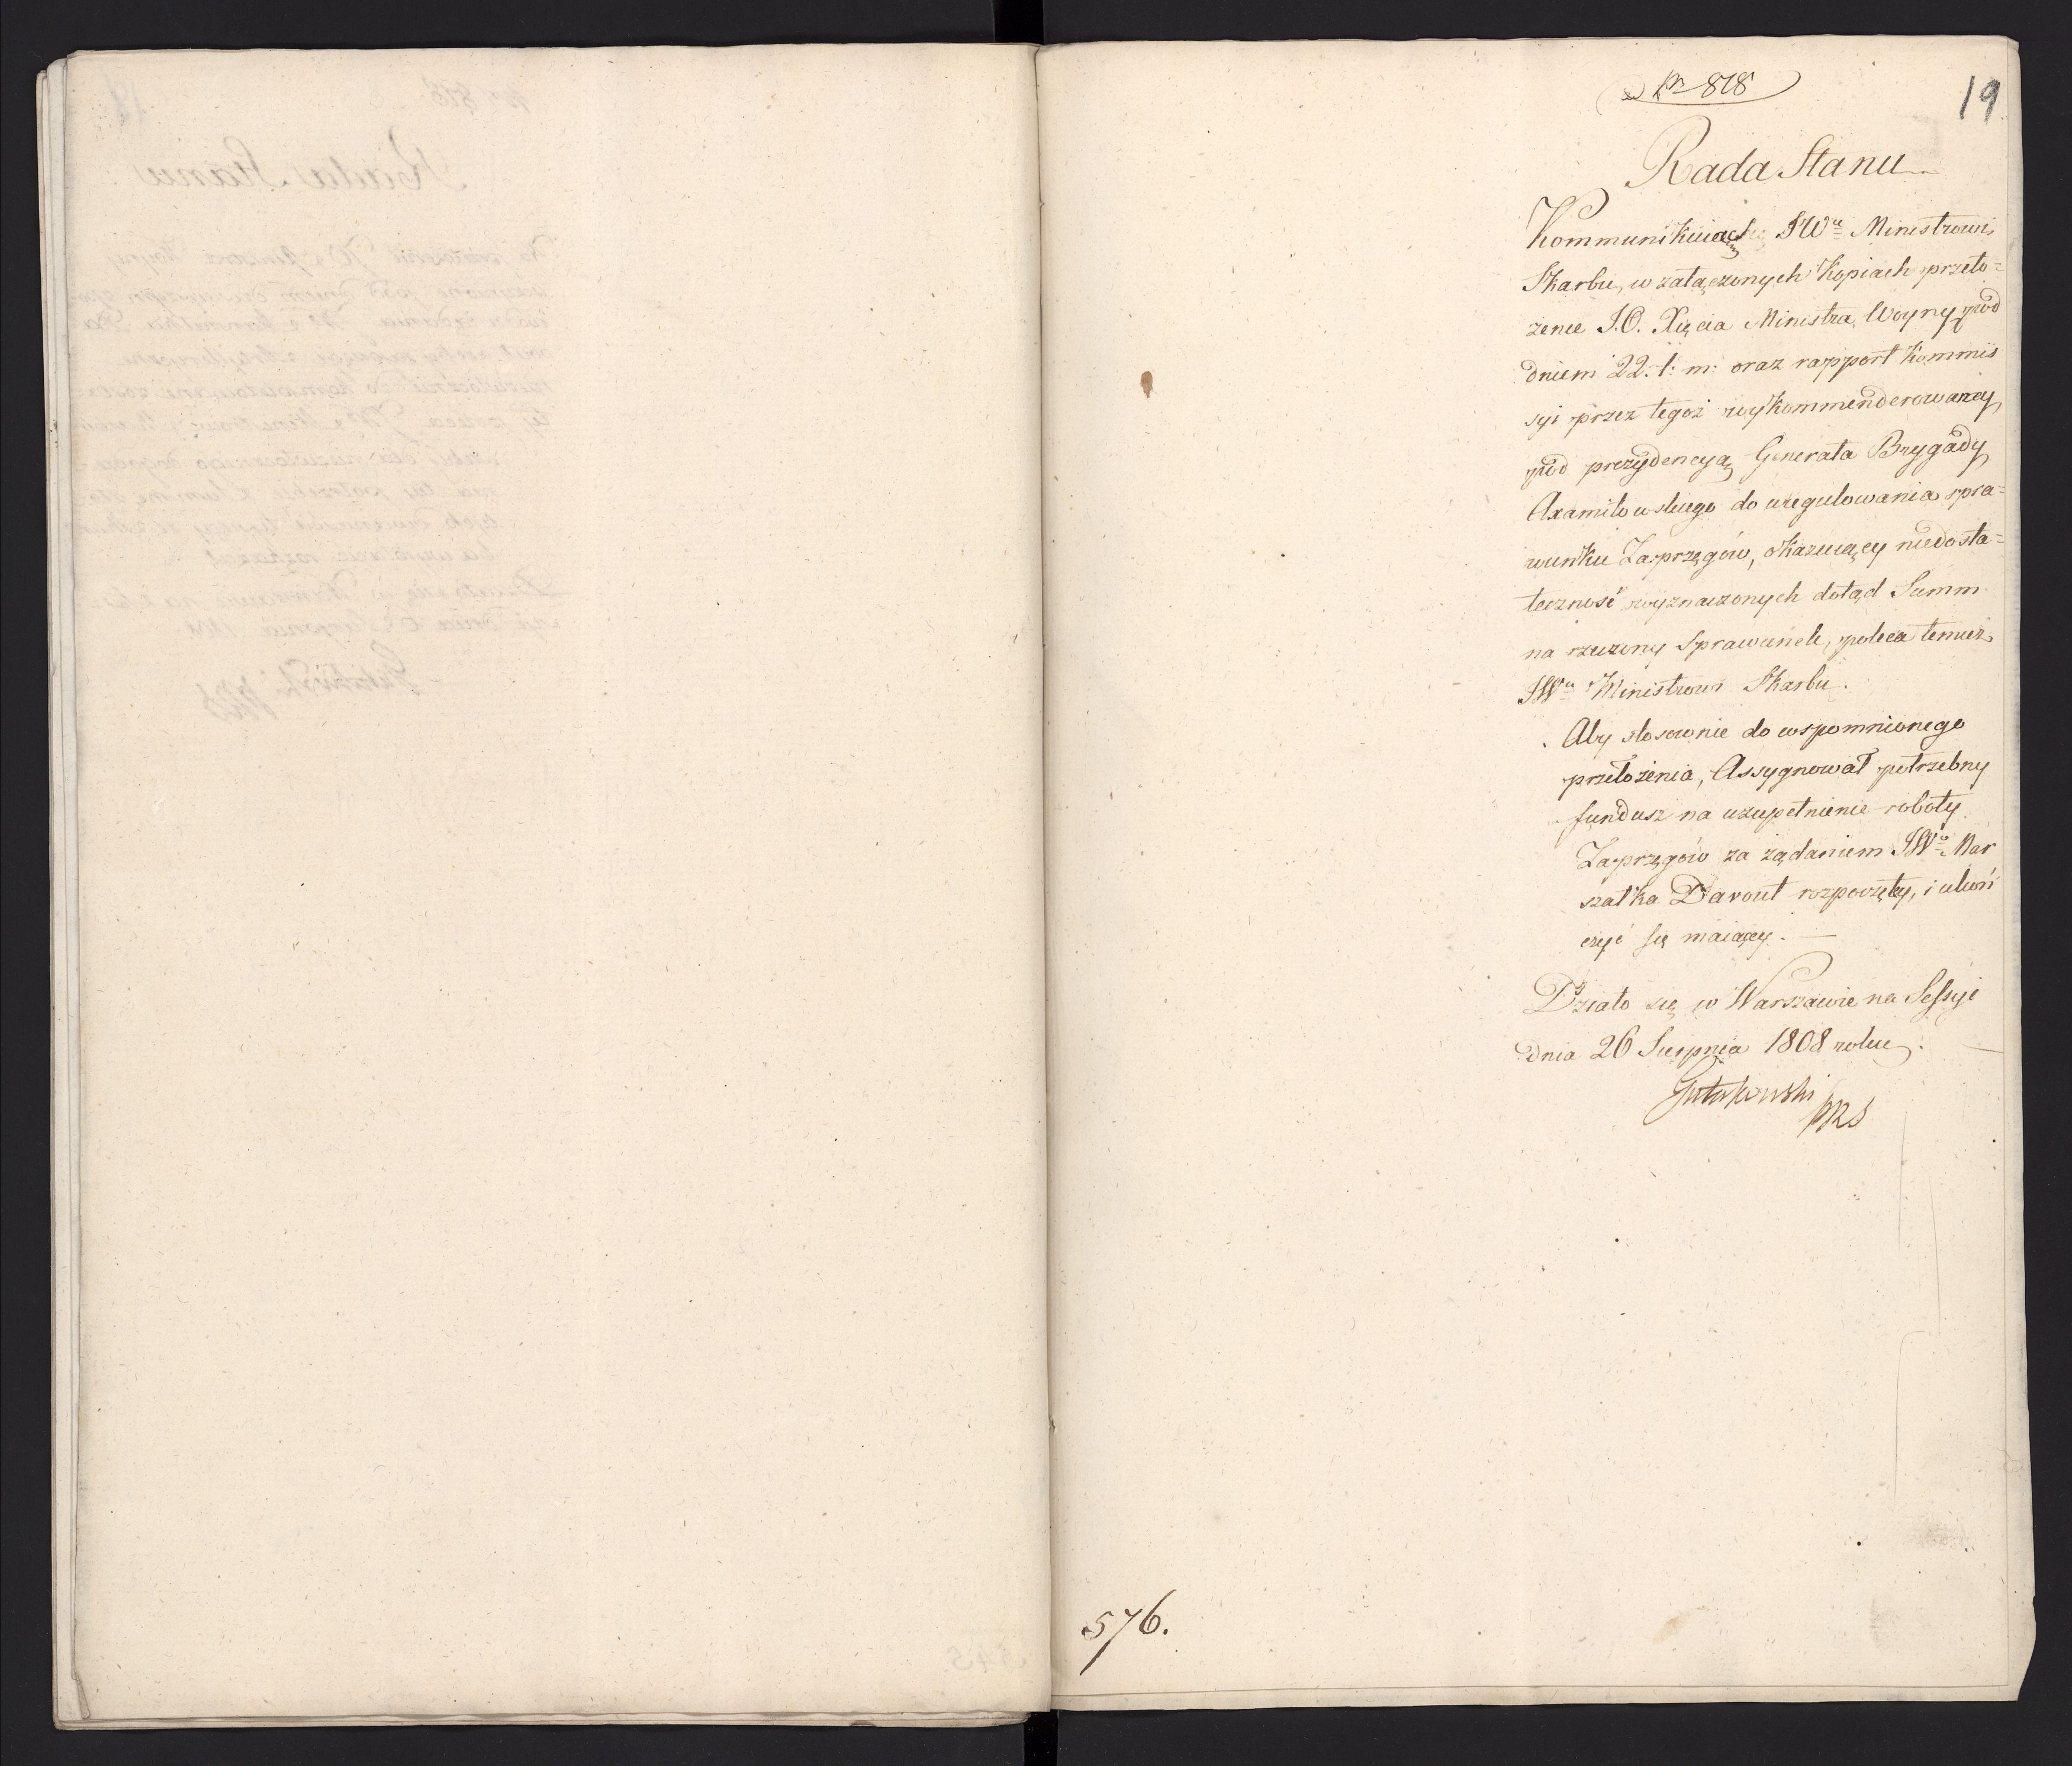 Nr 818
19
Rada Stanu
Kommunikuiąc JWu Ministrowi
Skarbu, w załączonych kopiach przeło=
żenie J.O. Xięcia Ministra Woyny pod
dniem 22. t: m: oraz rapport Kommis
syi przez tegoż wykommenderowaney
pod prezydencyą Generała Brygady
Axamitowskiego do uregulowania spra=
wunku Zaprzęgów, okazuiący niedosta=
teczność wyznaczonych dotąd Summ
na rzeczony sprawunek, poleca temuż
JWu Ministrowi Skarbu.
Aby stosownie do wspomnionego
przełożenia, Assygnował potrzebny
fundusz na uzupełnienie roboty
Zaprzęgów za żądaniem JWo Mar
szałka Davout rozpoczętey, i ukoń
czyć się maiącey. —
Działo się w Warszawie na Sessyi
dnia 26 Sierpnia 1808 roku.
Gutakowski
PRS
576.